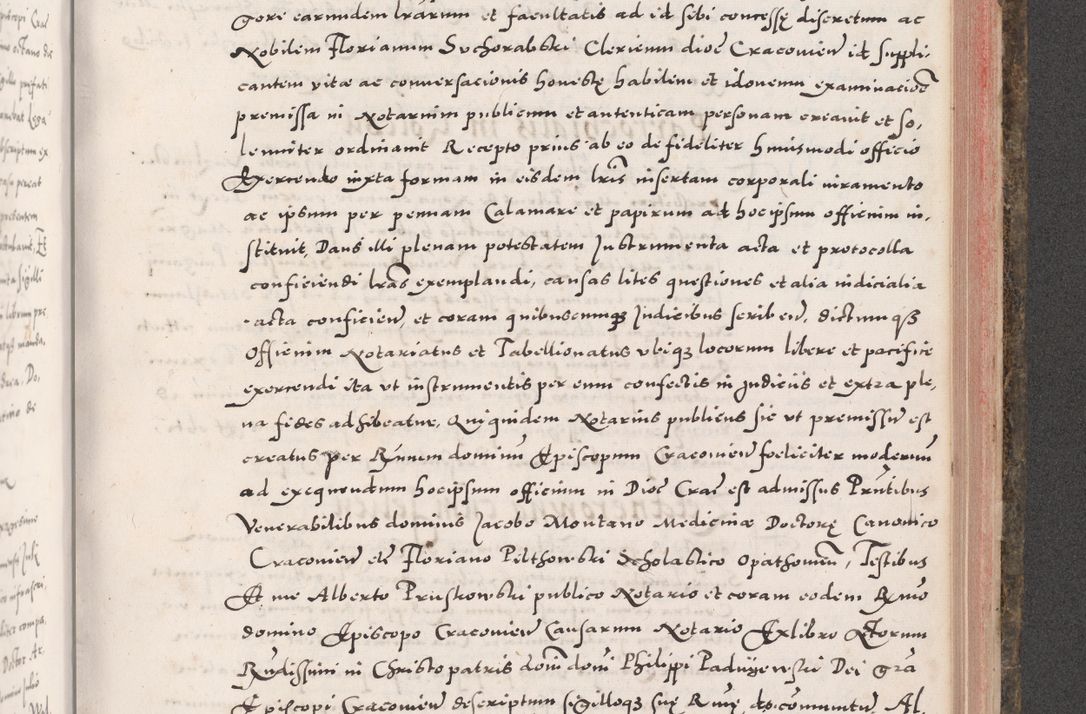 gore earumdem lrarum et facultatis ad id sibi concessę discretum ac
Nobilem Florianum Suchorabski Clericum dioc Cracovien id suppli-
cantem vitae ac conversacionis honestę habilem et idoneum examinacione
premissa in Notarium publicum et autenticam personam creavit et so-
lenniter ordinavit Recepto prius ab eo de fideliter huiusmodi officio
Exercendo iuxta formam in eisdem lris insertam corporali iuramento
ac ipsum per pennam Calamare et papirum ad hoc ipsum officium in-
stituit, Dans illi plenam potestatem Instrumenta acta et protocolla
conficiendi lras exemplandi, causas lites questiones et alia iudicialia
acta conficien, et coram quibuscumq Iudicibus scriben, dictumq
Officium Notariatus et Tabellionatus ubiq locorum libere et pacifice
exercendi ita ut instrumentis per eum confectis in Judiciis et extra ple-
na fides adhibeatur, Qui quidem Notarius publicus sic ut premissum est
creatus per Rmum dominum Episcopum Cracovien foeliciter modernum
ad exequendum hocipsum officium in Dioc Crac est admissus Pntibus
Venerabilibus dominis Jacobo Montano Medicinae Doctorę Canonico
Cracovien etc Floriano Pelthowski Scholastico Opathomen, Testibus
Et me Alberto Pruskowski publico Notario et coram eodem Rmo
domino Episcopo Cracovien Causarum Notario Ex libro Actorum
Rndissimi in Christo patris domini domini Philippi Padnyewski Dei gra
Episcopi Cracovien descriptum sigilloq suę Rmę do communitum, Al.